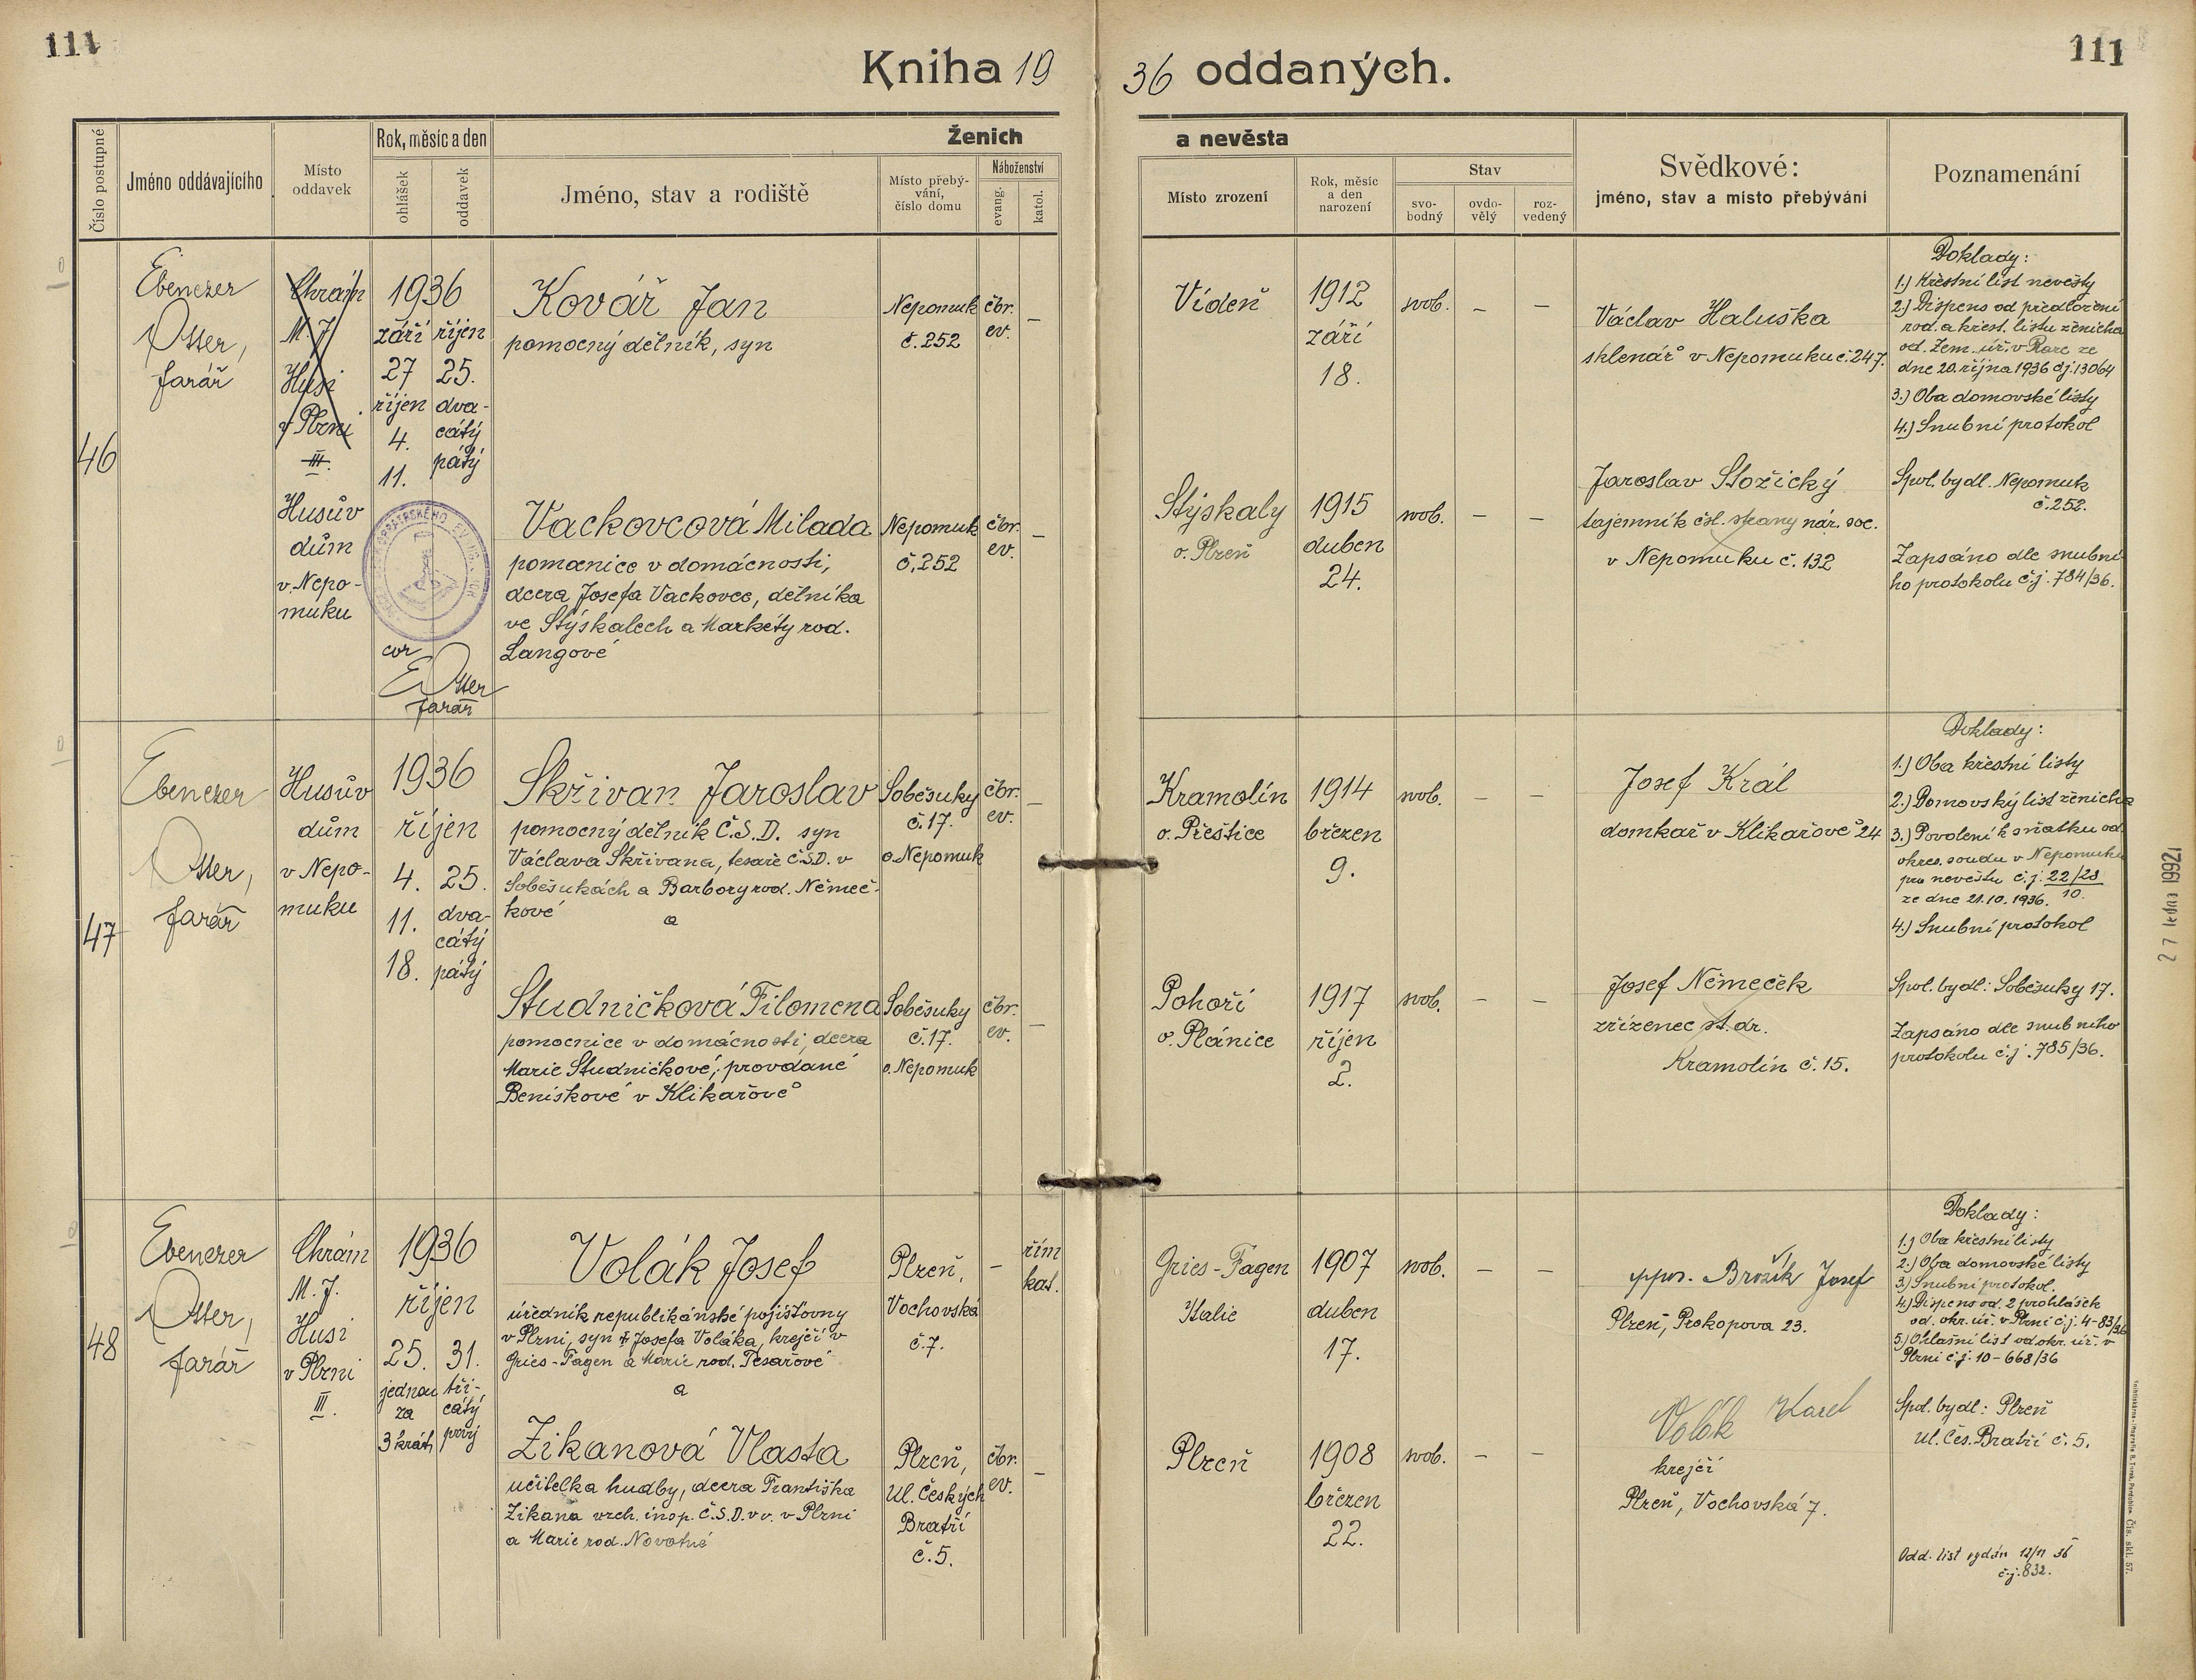 111
111
Kniha 1936 oddaných.
Číslo postupné
Jméno oddávajícího
Místo oddavek
Rok, měsíc a den
ohlášek
oddavek
Ženich
a nevěsta
Jméno, stav a rodiště
Místo přebý-
vání,
číslo domu
Náboženství
evang.
katol.
Místo zrození
Rok, měsíc
a den
narození
Stav
svo-
bodný
ovdo-
vělý
roz-
vedený
Svědkové:
jméno, stav a místo přebývání
Poznamenání
46
Ebenezer
Otter,
farář
Chrám
M. J.
Husi
v Plzni
III.
Husův
dům
v Nepo-
muku
1936
září
27
říjen
4.
11.
říjen
25.
dva-
cátý
pátý
cor
EOtter
farář
Kovář Jan
pomocný dělník, syn
Nepomuk
č. 252
čbr.
ev.
–
Vídeň
1912
září
18.
svob.
–
–
Václav Haluška
sklenář v Nepomuku č. 247.
Doklady:
1.) Křestní list nevěsty
2.) Dispens od předložení
rod. a křest. listu ženicha
od. Zem. úř. v Praze ze
dne 20. října 1936 čj. 13064
3.) Oba domovské listy
4.) Snubní protokol
Vackovcová Milada
pomocnice v domácnosti,
dcera Josefa Vackovce, dělníka
ve Stýskalech a Markéty rod.
Langové
Nepomuk
č. 252
čbr.
ev.
–
Stýskaly
o. Plzeň
1915
duben
24.
svob.
–
–
Jaroslav Složický
tajemník čsl. strany nár. soc.
v Nepomuku č. 132
Spol. bydl. Nepomuk
č. 252.
Zapsáno dle snubní
ho protokolu č.j. 784/36.
47
Ebenezer
Otter,
farář
Husův
dům
v Nepo-
muku
1936
říjen
4.
11.
18.
25.
dva-
cátý
pátý
Skřivan Jaroslav
pomocný dělník Č.S.D. syn
Václava Skřivana, tesaře Č.S.D. v
Soběsukách a Barbory rod. Němeč-
kové
a
Soběsuky
č. 17.
o. Nepomuk
čbr.
ev.
–
Kramolín
o. Přeštice
1914
březen
9.
svob.
–
–
Josef Král
domkař v Klikařově 24
Doklady:
1.) Oba křestní listy
2.) Domovský list ženicha
3.) Povolení k sňatku od
okres. soudu v Nepomuku
pro nevěstu č.j. 22/28
10.
ze dne 21.10. 1936.
4.) Snubní protokol
Studničková Filomena
pomocnice v domácnosti, dcera
Marie Studničkové, provdané
Beniskové v Klikařově
Soběsuky
č. 17.
o. Nepomuk
čbr.
ev.
–
Pohoří
o. Plánice
1917
říjen
2.
svob.
–
–
Josef Němeček
zřízenec st. dr.
Kramolín č. 15.
Spol. bydl.: Soběsuky 17.
Zapsáno dle snubního
protokolu č.j. 785/36.
27 ledna 1992
48
Ebenezer
Otter,
farář
Chrám
M. J.
Husi
v Plzni
III.
1936
říjen
25.
jednou
za
3 krát
31.
tři-
cátý
prvý
Volák Josef
úředník republikánské pojišťovny
v Plzni, syn † Josefa Voláka, krejčí v
Gries-Fagen a Marie rod. Tesařové
a
Plzeň,
Vochovská
č. 7.
–
řím
kat.
Gries-Fagen
Italie
1907
duben
17.
svob.
–
–
Brožík Josef
Plzeň, Prokopova 23.
Doklady:
1.) Oba křestní listy
2.) Oba domovské listy
3.) Snubní protokol.
4.) Dispens od. 2 prohlášek
od. okr. úř. v Plzni č.j. 4-83/36
5.) Ohlašní list od. okr. úř. v
Plzni č.j. 10-668/36
Zikanová Vlasta
učitelka hudby, dcera Františka
Zikana vrch. insp. Č.S.D. v v. v Plzni
a Marie rod. Novotné
Plzeň,
Ul. Českých
Bratří
č. 5.
čbr.
ev.
–
Plzeň
1908
březen
22.
svob.
–
–
Volák Karel
krejčí
Plzeň, Vochovská 7.
Spol. bydl.: Plzeň
Ul. Čes. Bratří č. 5.
Odd. list vydán 12/11 36
č.j. 832.
Čís. skl. 57.